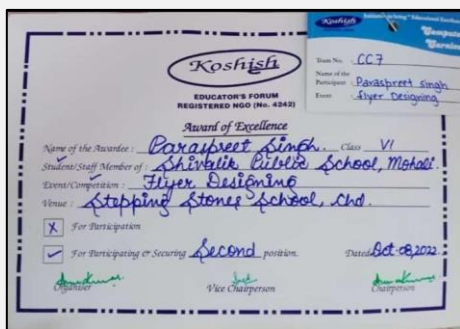 Koshish
EDUCATOR'S FORUM
REGISTERED NGO (No. 4242)
Award of Excellence
Name of the Awardee : Paraspreet Singh. Class VI
Student/Staff Member of : Shivalik Public School, Mohali.
Event/Competition : Flyer Designing
Venue : Stepping Stones School, Chd.
X For Participation
✓ For Participating & Securing Second position. Dated Oct-08, 2022
Organiser Vice Chairperson Chairperson
Koshish
Team No. CC7
Name of the
Participant Paraspreet Singh
Event flyer Designing